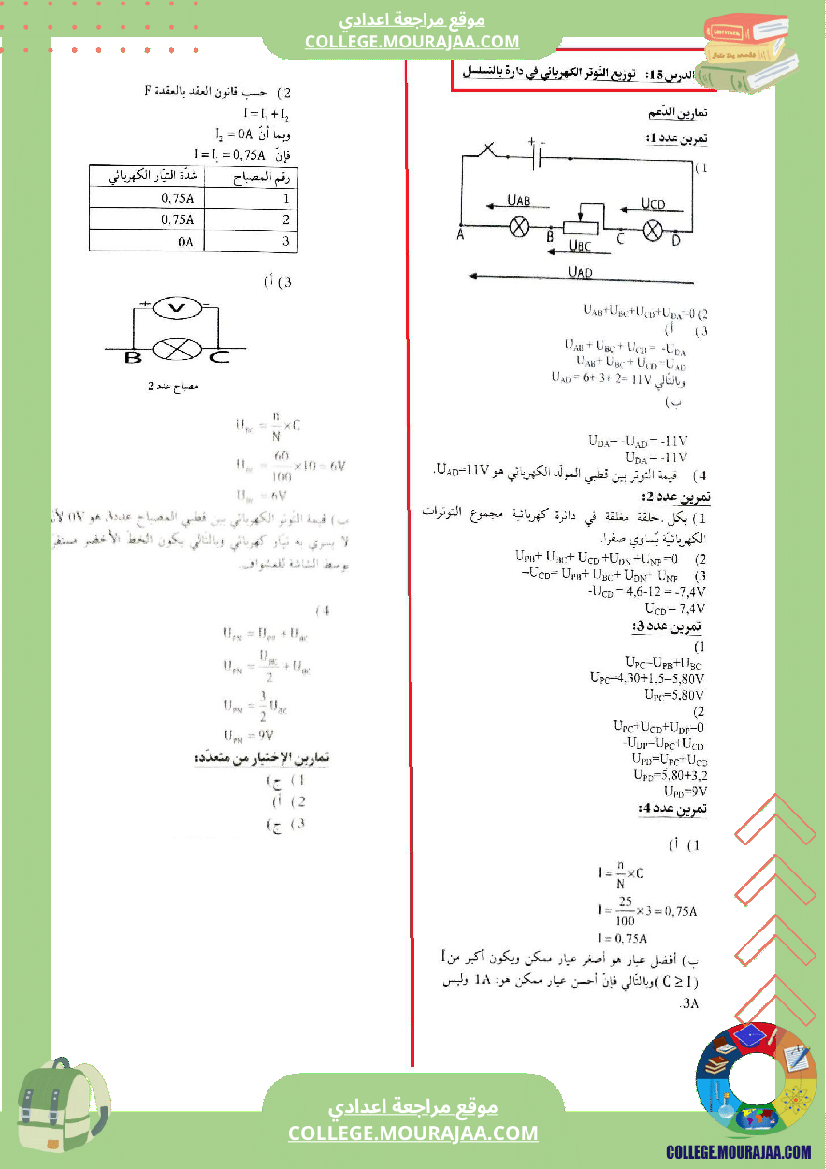 موقع مراجعة اعدادي
COLLEGE.MOURAJAA.COM
الدرس 15: توزيع التوتر الكهربائي في دارة بالتسلسل
تمارين الدّعم
تمرين عدد 1:
(1
+ -
UAB
UCD
A
B
C
D
UBC
UAD
2) UAB+UBC+UCD+UDA=0
3) أ)
UAB + UBC + UCD = -UDA
UAB+ UBC + UCD =UAD
وبالتالي UAD = 6+ 3+ 2= 11V
ب)
UDA= -UAD= -11V
UDA= -11V
4) قيمة التوتر بين قطبي المولّد الكهربائي هو UAD=11V.
تمرين عدد 2:
1) بكل حلقة مغلقة في دائرة كهربائية مجموع التوترات
الكهربائية يُساوي صفرا.
2) UPB+ UBC+ UCD +UDN +UNP=0
3) -UCD= UPB+ UBC+ UDN+ UNP
-UCD= 4,6-12 = -7,4V
UCD= 7,4V
تمرين عدد 3:
(1
UPC=UPB+UBC
UPC=4,30+1,5=5,80V
UPC=5,80V
(2
UPC+UCD+UDP=0
-UDP=UPC+UCD
UPD=UPC+UCD
UPD=5,80+3,2
UPD=9V
تمرين عدد 4:
1) أ)
I = n/N ×C
I = 25/100 ×3 = 0,75A
I = 0,75A
ب) أفضل عيار هو أصغر عيار ممكن ويكون أكبر من I
(C ≥ I) وبالتالي فإنّ أحسن عيار ممكن هو: 1A وليس
3A.
2) حسب قانون العقد بالعقدة F
I = I1 + I2
وبما أنّ I2 = 0A
فإنّ I = I1 = 0,75A
رقم المصباح شدّة التيّار الكهربائي
1 0,75A
2 0,75A
3 0A
3) أ)
+ V -
B C
مصباح عدد 2
UBC = n/N ×C
UBC = 60/100 ×10 = 6V
UBC = 6V
ب) قيمة التوتر الكهربائي بين قطبي المصباح عدد3 هو 0V لأن
لا يسري به تيار كهربائي وبالتالي يكون الخط الأخضر مستقر
بوسط الشاشة للمشواف.
(4
UPN = + UBC
UPN = UBC/2 + UBC
UPN = 3/2 UBC
UPN = 9V
تمارين الإختيار من متعدّد:
1) ج)
2) أ)
3) ج)
موقع مراجعة اعدادي
COLLEGE.MOURAJAA.COM
COLLEGE.MOURAJAA.COM